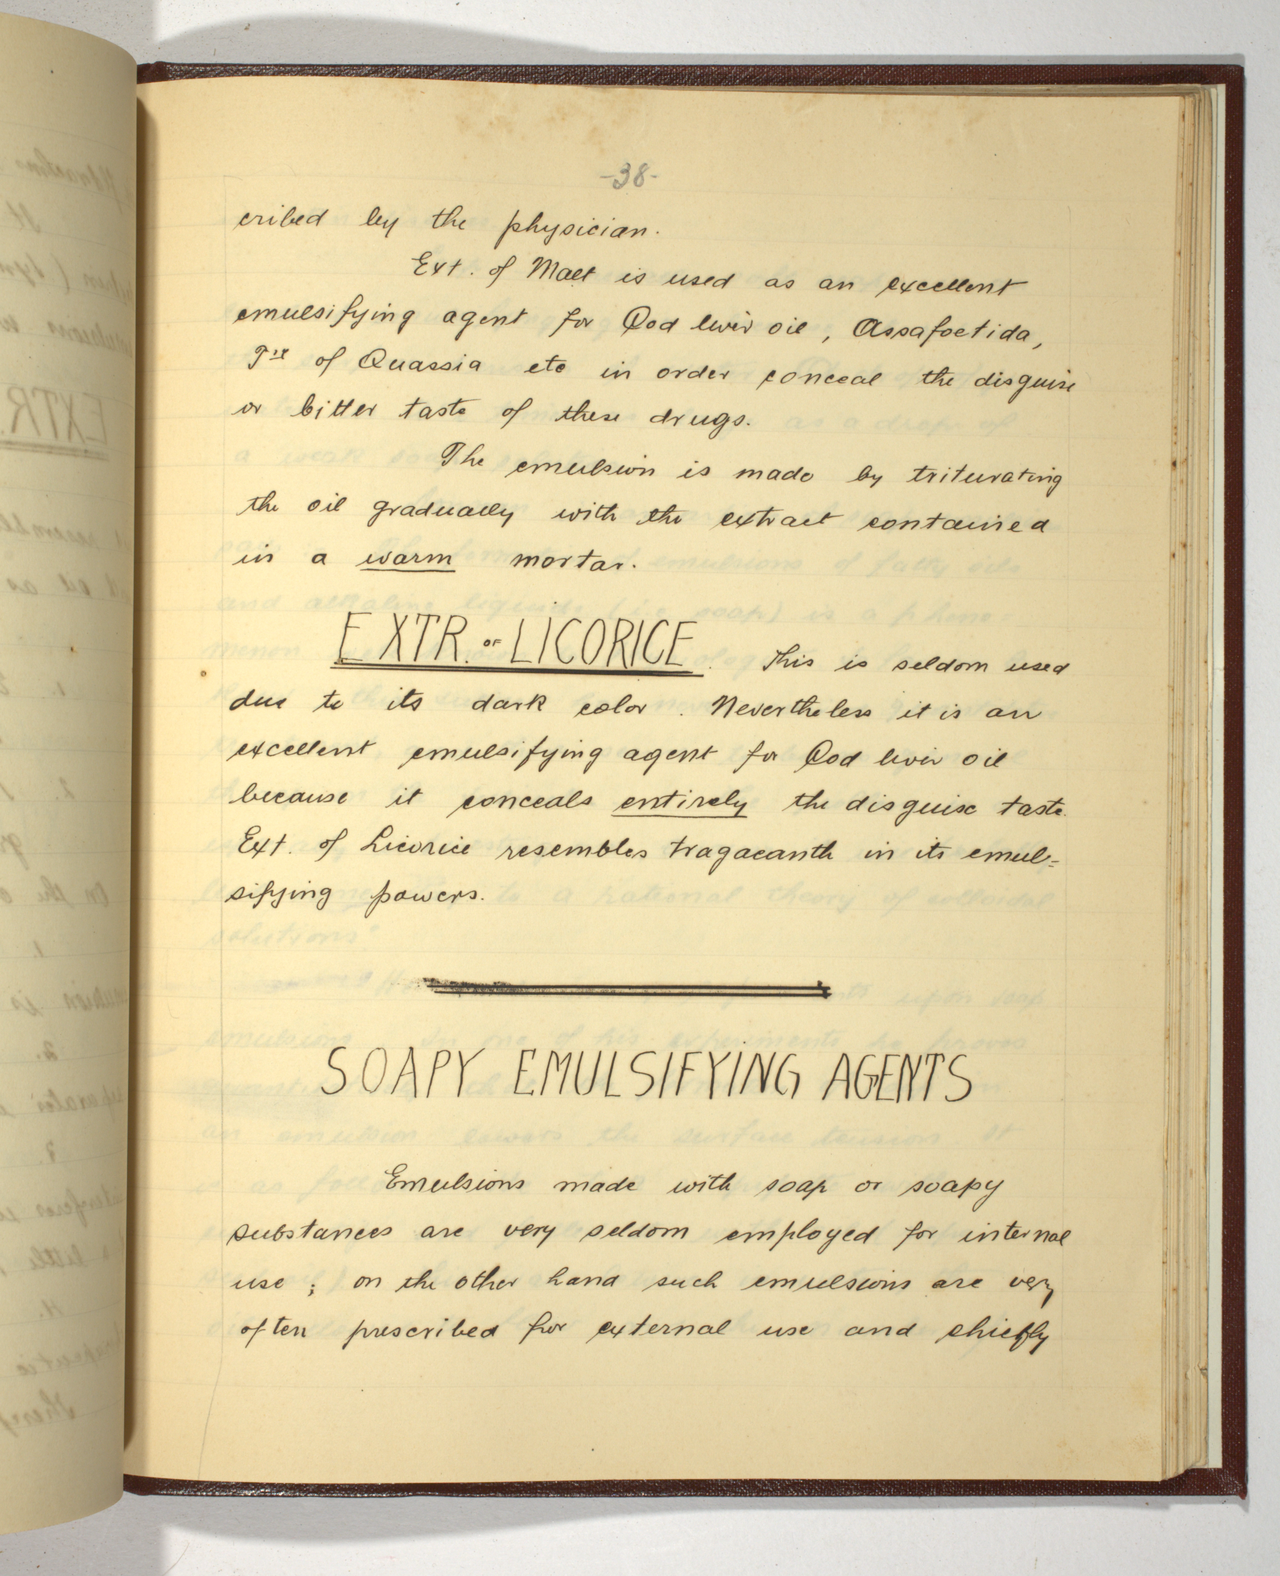 -38-
cribed by the physician.
Ext. of Malt is used as an excellent
emulsifying agent for Cod liver oil, Assafoetida,
Tre of Quassia etc in order conceal the disguise
or bitter taste of these drugs.
The emulsion is made by triturating
the oil gradually with the extract contained
in a warm mortar.
EXTR. OF LICORICE. This is seldom used
due to its dark color. Nevertheless it is an
excellent emulsifying agent for Cod liver oil
because it conceals entirely the disguise taste.
Ext. of Licorice resembles tragacanth in its emul=
sifying powers.
SOAPY EMULSIFYING AGENTS
Emulsions made with soap or soapy
substances are very seldom employed for internal
use; on the other hand such emulsions are very
often prescribed for external use and chiefly